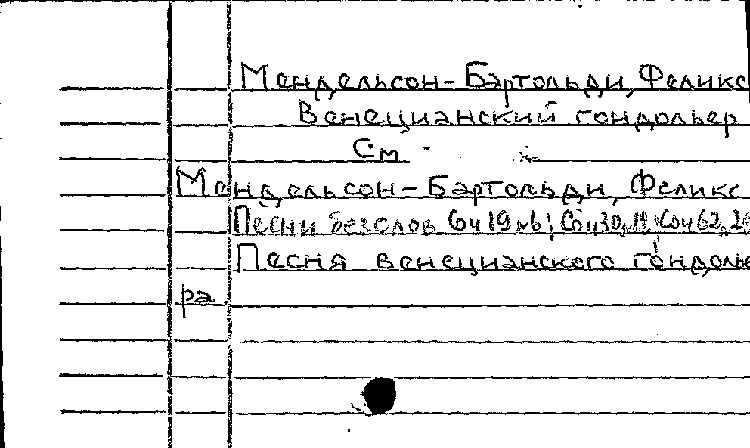 Мендельсон-Бартольди, Феликс
Венецианский гондольер
См
Мендельсон-Бартольди, Феликс
Песни без слов Соч 19 №6; Соч 30, Соч 62,
Песня венецианского гондолье
ра.